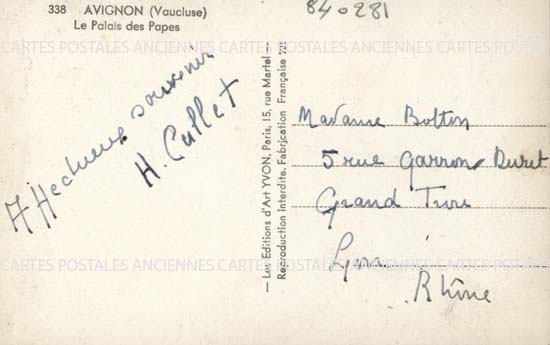 338 AVIGNON (Vaucluse)
Le Palais des Papes
840281
Affectueux souvenir
H. Callet
— Les Editions d'Art YVON, Paris, 15, rue Martel —
Reproduction interdite. Fabrication Française
Madame Bolton
5 rue Garron Duret
Grand Trou
Lyon
Rhône
CARTES POSTALES ANCIENNES CARTES POSTALES ANCIENNES CARTES POSTALES ANCIENNES